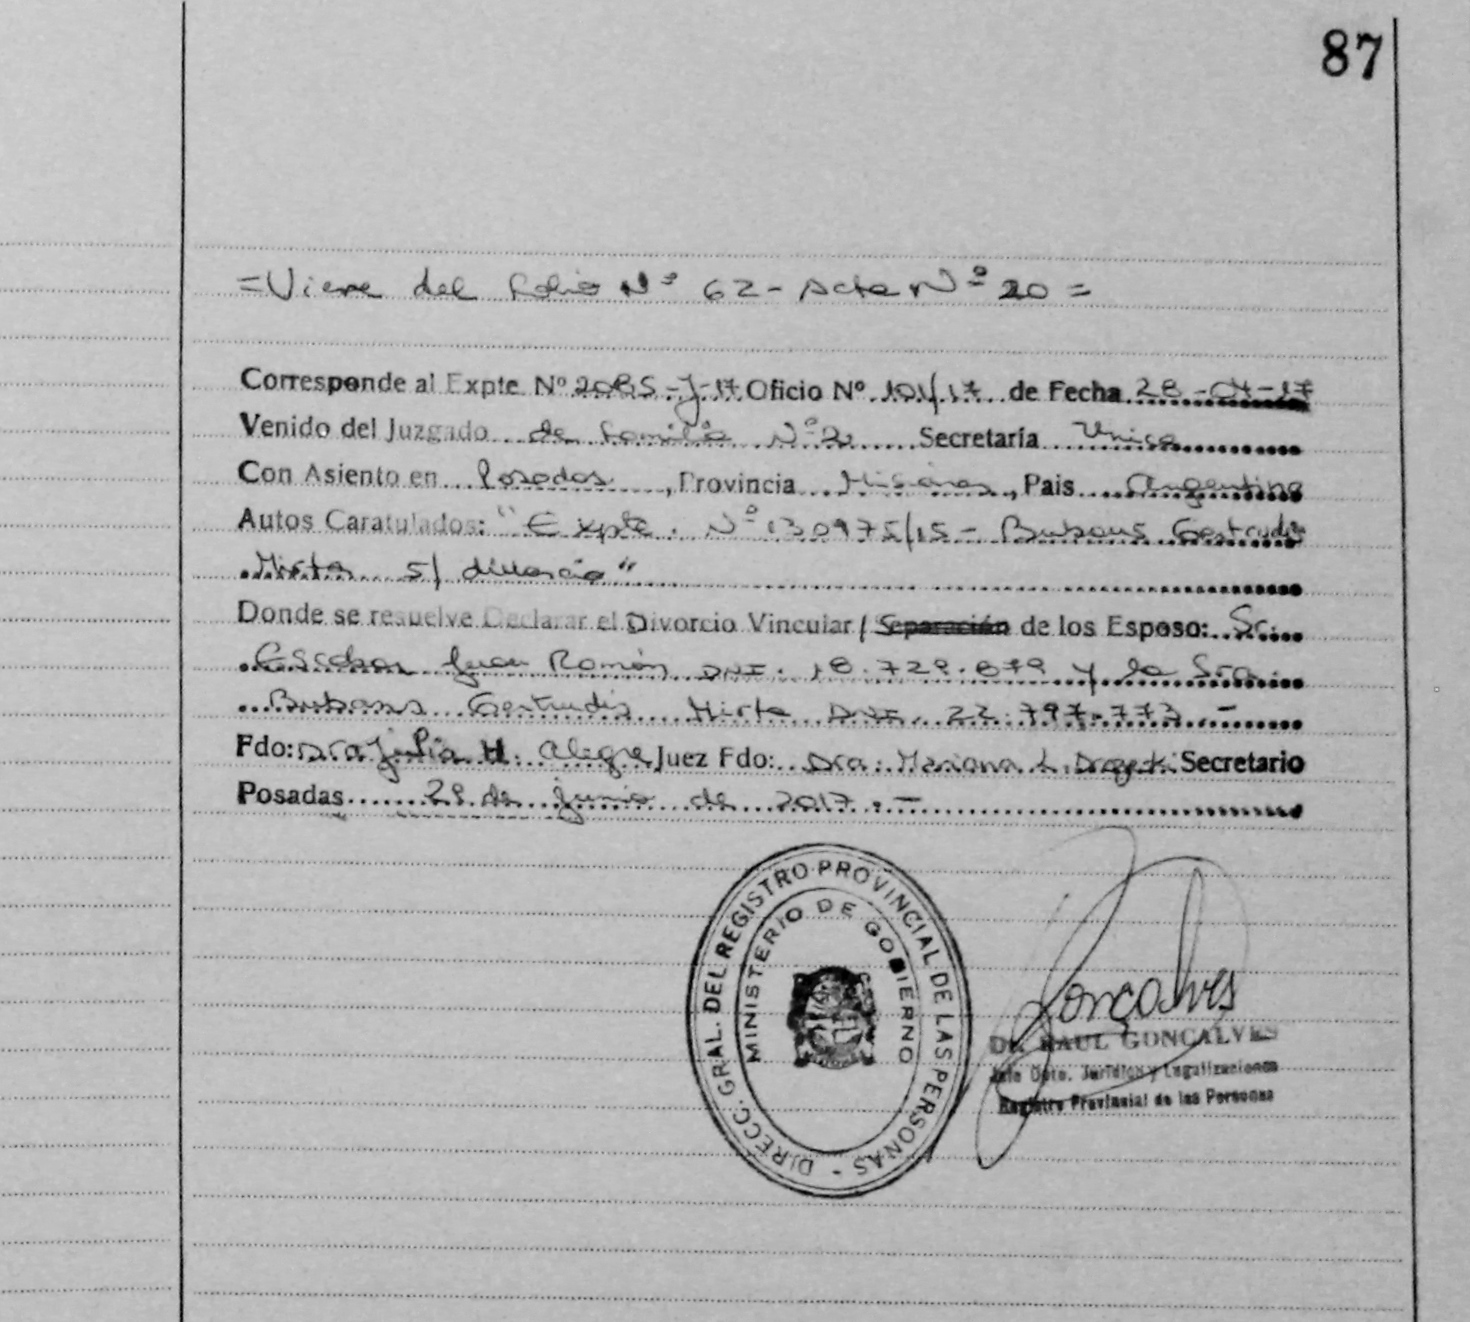 87
=Viene del folio Nº 62 - Acta Nº 20 =
Corresponde al Expte Nº 2085-J-17 Oficio Nº 101/17 de Fecha 28-04-17
Venido del Juzgado de Familia Nº 2 Secretaría Unica
Con Asiento en Posadas, Provincia Misiones, Pais Argentina
Autos Caratulados: "Expte. Nº 130975/15 - Gertrudis
Mirta s/ divorcio"
Donde se resuelve Declarar el Divorcio Vincular / Separación de los Esposo: Sr.
Escobar Juan Román DNI. 18.729.879 y la Sra.
Gertrudis Mirta DNI. 22.797.773.-
Fdo: Dra Julia H. Alegre Juez Fdo: Dra. Mariana L. Secretario
Posadas 29 de junio de 2017.-
DIRECC. GRAL. DEL REGISTRO PROVINCIAL DE LAS PERSONAS -
MINISTERIO DE GOBIERNO
Gonçalves
Dr. RAUL GONCALVES
Jefe Dpto. Jurídico y Legalizaciones
Registro Provincial de las Personas